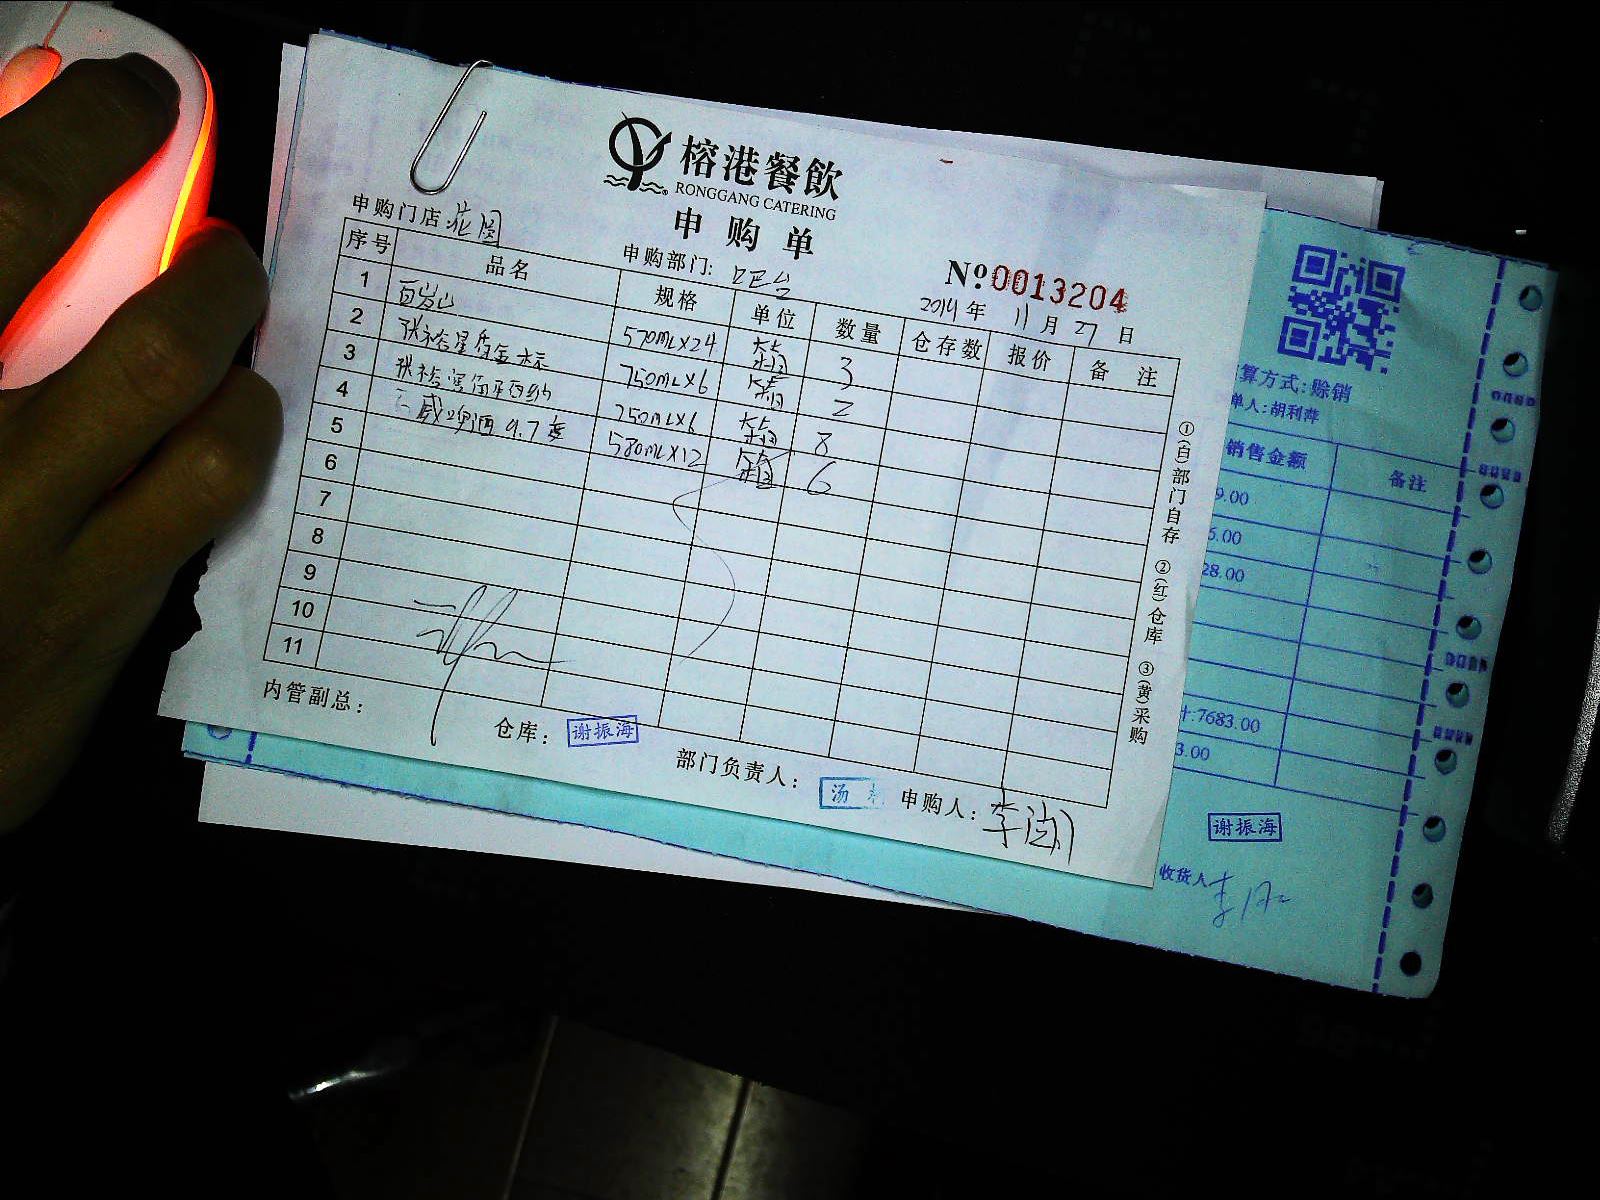 榕港餐飲
RONGGANG CATERING
申购单
申购门店:花园
申购部门:吧台
№0013204
2014年11月27日
序号 品名 规格 单位 数量 仓存数 报价 备注
1 百岁山 570ML×24 箱 3
2 750ML×6 箱 2
3 750ML×6 箱 8
4 580ML×12 箱 6
5
6
7
8
9
10
11
①(白)部门自存 ②(红)仓库 ③(黄)采购
内管副总:
仓库: 谢振海
部门负责人: 汤
申购人: 李
算方式:赊销
单人:胡利萍
销售金额 备注
9.00
6.00
28.00
计:7683.00
3.00
谢振海
收货人 李